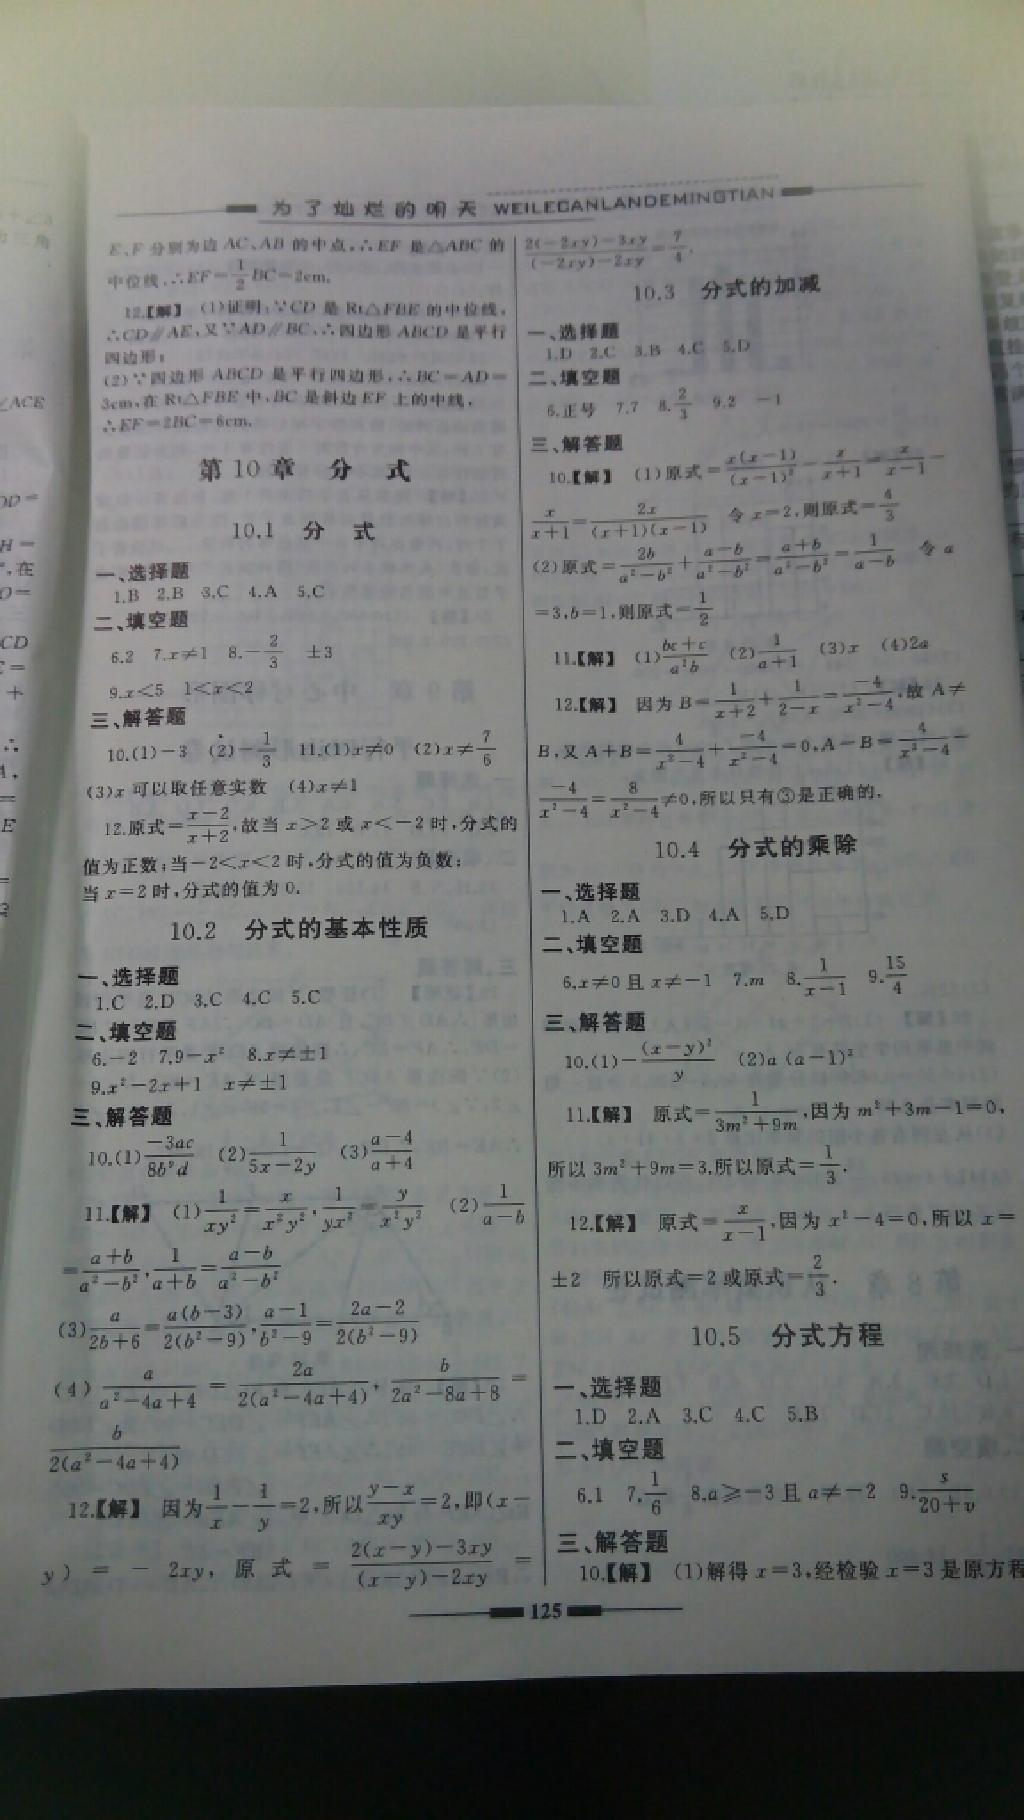 为了灿烂的明天 WEILECANLANDEMINGTIAN
E、F 分别为边 AC、AB 的中点,∴EF 是△ABC 的
中位线,∴EF=1/2 BC=2cm.
12.【解】 (1)证明:∵CD 是 Rt△FBE 的中位线,
∴CD∥AE,又∵AD∥BC,∴四边形 ABCD 是平行
四边形;
(2)∵四边形 ABCD 是平行四边形,∴BC=AD=
3cm,在 Rt△FBE 中,BC 是斜边 EF 上的中线,
∴EF=2BC=6cm.
第 10 章 分 式
10.1 分 式
一、选择题
1.B 2.B 3.C 4.A 5.C
二、填空题
6.2 7.x≠1 8.-2/3 ±3
9.x<5 1<x<2
三、解答题
10.(1)-3 (2)-1/3 11.(1)x≠0 (2)x≠7/6
(3)x 可以取任意实数 (4)x≠1
12.原式=(x-2)/(x+2),故当 x>2 或 x<-2 时,分式的
值为正数;当-2<x<2 时,分式的值为负数;
当 x=2 时,分式的值为 0.
10.2 分式的基本性质
一、选择题
1.C 2.D 3.C 4.C 5.C
二、填空题
6.-2 7.9-x² 8.x≠±1
9.x²-2x+1 x≠±1
三、解答题
10.(1)(-3ac)/(8b²d) (2)1/(5x-2y) (3)(a-4)/(a+4)
11.【解】 (1)1/(xy²)=x/(x²y²),1/(yx²)=y/(x²y²) (2)1/(a-b)
=(a+b)/(a²-b²),1/(a+b)=(a-b)/(a²-b²)
(3)a/(2b+6)=a(b-3)/(2(b²-9)),(a-1)/(b²-9)=(2a-2)/(2(b²-9))
(4)a/(a²-4a+4)=2a/(2(a²-4a+4)),b/(2a²-8a+8)=
b/(2(a²-4a+4))
12.【解】 因为1/x-1/y=2,所以(y-x)/(xy)=2,即(x-
y)=-2xy,原式=(2(x-y)-3xy)/((x-y)-2xy)=
(2(-2xy)-3xy)/((-2xy)-2xy)=7/4.
10.3 分式的加减
一、选择题
1.D 2.C 3.B 4.C 5.D
二、填空题
6.正号 7.7 8.2/3 9.2 -1
三、解答题
10.【解】 (1)原式=x(x-1)/(x-1)²-x/(x+1)=x/(x-1)-
x/(x+1)=2x/((x+1)(x-1)) 令 x=2,则原式=4/3
(2)原式=2b/(a²-b²)+(a-b)/(a²-b²)=(a+b)/(a²-b²)=1/(a-b) 令 a
=3,b=1,则原式=1/2
11.【解】 (1)(bc+c)/(a²b) (2)1/(a+1) (3)x (4)2a
12.【解】 因为 B=1/(x+2)+1/(2-x)=-4/(x²-4),故 A≠
B,又 A+B=4/(x²-4)+-4/(x²-4)=0,A-B=4/(x²-4)-
-4/(x²-4)=8/(x²-4)≠0,所以只有③是正确的.
10.4 分式的乘除
一、选择题
1.A 2.A 3.D 4.A 5.D
二、填空题
6.x≠0 且 x≠-1 7.m 8.1/(x-1) 9.15/4
三、解答题
10.(1)-(x-y)²/y (2)a(a-1)²
11.【解】 原式=1/(3m²+9m),因为 m²+3m-1=0,
所以 3m²+9m=3,所以原式=1/3.
12.【解】 原式=x/(x-1),因为 x²-4=0,所以 x=
±2 所以原式=2 或原式=2/3.
10.5 分式方程
一、选择题
1.D 2.A 3.C 4.C 5.B
二、填空题
6.1 7.1/6 8.a≥-3 且 a≠-2 9.s/(20+v)
三、解答题
10.【解】 (1)解得 x=3,经检验 x=3 是原方程
125
∠ACE